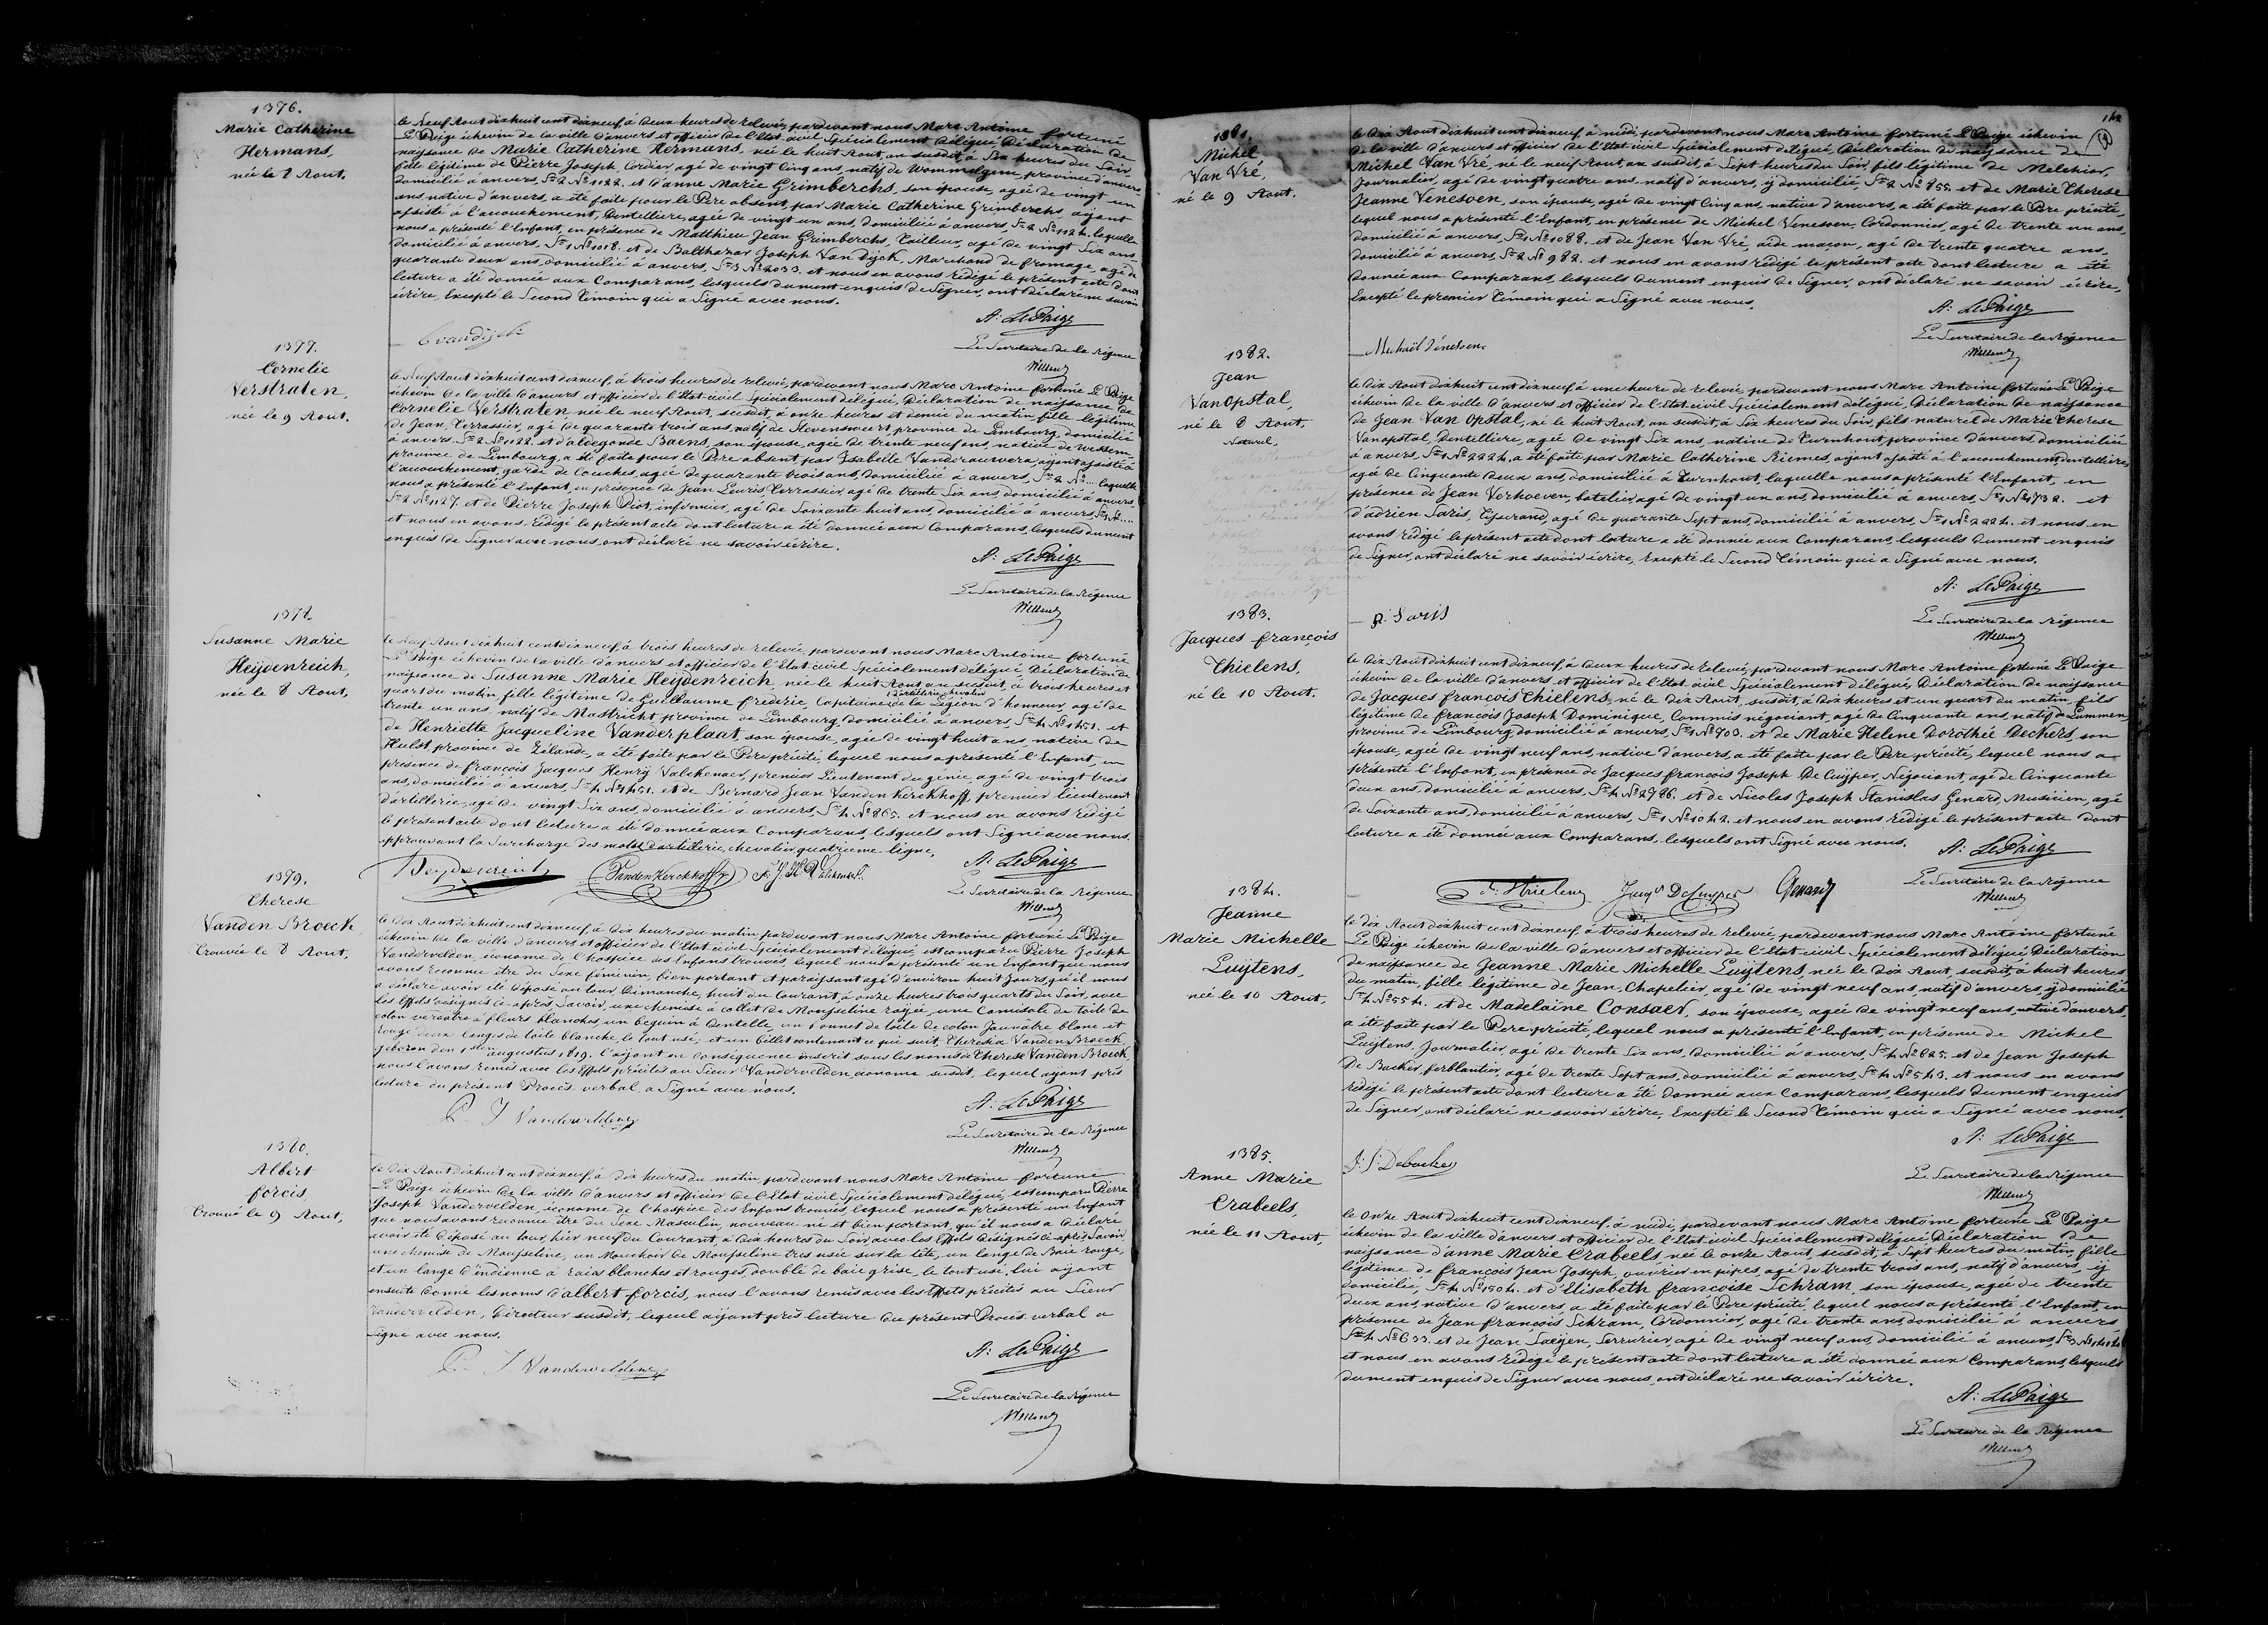 1376.
Marie Catherine
Hermans,
née le 8 Aout.
le Neuf Aout dixhuit cent dixneuf, à deux heures de relevée, pardevant nous Marc Antoine fortuné
Le Paige échevin de la ville d'anvers et officier de l'Etat civil Spécialement délégué, Déclaration de
naissance de Marie Catherine Hermans, née le huit Aout, an susdit, à Six heures du Soir,
fille légitime de Pierre Joseph, Cordier, agé de vingt Cinq ans, natif de Wommelgem, province d'anvers
domicilié à anvers, Son 2 No 1122. et d'anne Marie Grimberchs, son épouse, agée de vingt un
ans, native d'anvers, a été faite pour le Père absent, par Marie Catherine Grimberchs, ayant
assisté à l'accouchement, Dentellière, agée de vingt un ans, domiciliée à anvers, Son 2 No 1124. laquelle
nous a présenté l'Enfant, en présence de Matthieu Jean Grimberchs, Tailleur, agé de vingt Six ans
domicilié à anvers, Son 1 No 1018. et de Balthazar Joseph Van Dijck, Marchand de fromage, agé de
quarante deux ans, domicilié à anvers, Son 3 No 2033. et nous en avons rédigé le présent acte dont
lecture a été donnée aux Comparans, lesquels dument enquis de Signer, ont déclaré ne savoir
écrire, Excepté le Second Témoin qui a Signé avec nous.
A: Le Paige
Le Secretaire de la Régence
Willems
1377.
Cornelie
Verstraten,
née le 9 Aout.
le Neuf Aout dixhuit cent dixneuf, à trois heures de relevée, pardevant nous Marc Antoine fortuné Le Paige
échevin de la ville d'anvers et officier de l'Etat civil Spécialement délégué, Déclaration de naissance de
Cornelie Verstraten née le neuf Aout, susdit, à onze heures et demie du matin, fille légitime
de Jean, Terrassier, agé de quarante trois ans, natif de Stevensweert, province de Limbourg, domicilié
à anvers, Son 2 No 1122. et d'aldegonde Baens, son épouse, agée de trente neuf ans, native de Wessem,
province de Limbourg, a été faite pour le Père absent, par Isabelle Vanderauwera, ayant assisté à
l'accouchement, garde de Couches, agée de quarante trois ans, domiciliée à anvers, Son 2 No ... laquelle
nous a présenté l'Enfant, en présence de Jean Leuris, Terrassier, agé de trente Six ans, domicilié à anvers,
Son 2 No 1127. et de Pierre Joseph Piot, infirmier, agé de Soixante huit ans, domicilié à anvers, Son 1 No ....
et nous en avons rédigé le présent acte dont lecture a été donnée aux Comparans, lesquels dument
enquis de Signer avec nous, ont déclaré ne savoir écrire.
A: Le Paige
Le Secretaire de la Régence
Willems
1378.
Susanne Marie
Heijdenreich,
née le 8 Aout,
le Neuf Aout dixhuit cent dixneuf, à trois heures de relevée, pardevant nous Marc Antoine fortuné
Le Paige échevin de la ville d'anvers et officier de l'Etat civil Spécialement délégué, Déclaration de
naissance de Susanne Marie Heijdenreich née le huit Aout an susdit, à trois heures et
quart du matin, fille légitime de Guillaume frederic, Capitaine d'artillerie, chevalier de la Légion d'honneur, agé de
trente un ans, natif de Mastricht province de Limbourg, domicilié à anvers, Son 4 No 1451. et
de Henriette Jacqueline Vanderplaat, son épouse, agée de vingt huit ans, native de
Hulst province de Zélande, a été faite par le Père précité, lequel nous a présenté l'Enfant, en
présence de françois Jacques Henrij Valckenaer, premier Lieutenant du génie, agé de vingt trois
ans, domicilié à anvers, Son 4 No 1451. et de Bernard Jean Vanden Kerckhoff, premier lieutenant
d'artillerie, agé de vingt Six ans, domicilié à anvers, Son 4 No 865. et nous en avons rédigé
le présent acte dont lecture a été donnée aux Comparans, lesquels ont Signé avec nous.
approuvant la Surcharge des mots d'artillerie, chevalier quatrieme ligne.
Vanden Kerckhoff
A: Le Paige
Le Secretaire de la Régence
Willems
1379.
Therese
Vanden Broeck
trouvée le 8 Aout,
le Dix Aout dixhuit cent dixneuf, à Dix heures du matin, pardevant nous Marc Antoine fortuné Le Paige
échevin de la ville d'anvers et officier de l'Etat civil Spécialement délégué, est comparu Pierre Joseph
Vandervelden, économe de l'hospice des Enfans trouvés, lequel nous a présenté un Enfant que nous
avons reconnu être du Sexe féminin, bien portant et paraissant agé d'environ huit Jours, qu'il nous
a déclaré avoir été déposé au tour, Dimanche, huit du Courant, à onze heures trois quarts du Soir, avec
les Effets désignés ci-après, Savoir, une chemise à collet de Mousseline rayée, une Camisole de toile de
coton verdâtre à fleurs blanches, un béguin à Dentelle, un bonnet de toile de coton Jaunâtre, blanc et
rouge, deux langes de toile blanche, le tout usé; et un billet contenant ce qui suit, Theresia Vanden Broeck
geboren den 1sten augustus 1819. l'ayant en Conséquence inscrit sous les noms de Therese Vanden Broeck
nous l'avons remis avec les Effets précités au Sieur Vandervelden, économe susdit, lequel ayant pris
lecture du présent Procès verbal, a Signé avec nous.
P. J Vandervelden
A: Le Paige
Le Secretaire de la Régence
Willems
1380.
Albert
forcis,
trouvé le 9 Aout,
le Dix Aout dixhuit cent dixneuf, à Dix heures du matin, pardevant nous Marc Antoine fortuné
Le Paige échevin de la ville d'anvers et officier de l'Etat civil Spécialement délégué, est comparu Pierre
Joseph Vandervelden, économe de l'hospice des Enfans trouvés, lequel nous a présenté un Enfant
que nous avons reconnu être du Sexe Masculin, nouveau né et bien portant, qu'il nous a déclaré
avoir été déposé au tour, hier neuf du Courant, à Dix heures du Soir, avec les Effets désignés ci-après, Savoir,
une chemise de Mousseline, un Mouchoir de Mousseline très usée sur la tête, un lange de Baie rouge,
et un lange d'indienne à raies blanches et rouges, doublé de baie grise, le tout usé, lui ayant
ensuite donné les noms d'albert forcis, nous l'avons remis avec les Effets précités au Sieur
Vandervelden, Directeur susdit, lequel ayant pris lecture du présent Procès verbal a
signé avec nous.
P. J Vandervelden
A: Le Paige
Le Secretaire de la Régence
Willems
1381.
Michel
Van Vré,
né le 9 Aout.
le Dix Aout dixhuit cent dixneuf, à midi, pardevant nous Marc Antoine fortuné Le Paige échevin
de la ville d'anvers et officier de l'Etat civil Spécialement délégué, Déclaration de naissance de
Michel Van Vré, né le neuf Aout, an susdit, à Sept heures du Soir, fils légitime de Melchior,
Journalier, agé de vingt quatre ans, natif d'anvers, ij domicilié, Son 2 No 855. et de Marie Therese
Jeanne Venesoen, son épouse, agée de vingt Cinq ans, native d'anvers, a été faite par le Père précité,
lequel nous a présenté l'Enfant, en présence de Michel Venesoen, Cordonnier, agé de trente un ans,
domicilié à anvers, Son 1 No 1088. et de Jean Van Vré, aide maçon, agé de trente quatre ans,
domicilié à anvers, Son 2 No 982. et nous en avons rédigé le présent acte dont lecture a été
donnée aux Comparans, lesquels dument enquis de Signer, ont déclaré ne savoir écrire,
Excepté le premier Témoin qui a Signé avec nous.
Michaël Venesoen
A: Le Paige
Le Secretaire de la Régence
Willems
1382.
Jean
Van Opstal,
né le 8 Aout,
Naturel,
le Dix Aout dixhuit cent dixneuf, à une heure de relevée, pardevant nous Marc Antoine fortuné Le Paige
échevin de la ville d'anvers et officier de l'Etat civil Spécialement délégué, Déclaration de naissance
de Jean Van Opstal, né le huit Aout, an susdit, à Six heures du Soir, fils naturel de Marie Therese
Vanopstal, Dentellière, agée de vingt Six ans, native de Turnhout, province d'anvers domiciliée
à anvers, Son 1 No 2224. a été faite par Marie Catherine Riemes, ayant assisté à l'accouchement, dentellière,
agée de Cinquante deux ans, domiciliée à Turnhout, laquelle nous a présenté l'Enfant, en
présence de Jean Verhoeven, batelier, agé de vingt un ans, domicilié à anvers, Son 1 No 1732. et
d'adrien Saris, Tisserand, agé de quarante Sept ans, domicilié à anvers, Son 1 No 2224. et nous en
avons rédigé le présent acte dont lecture a été donnée aux Comparans, lesquels dument enquis
de Signer, ont déclaré ne savoir écrire, Excepté le Second Témoin qui a Signé avec nous.
A: Saris
A: Le Paige
Le Secretaire de la Régence
Willems
1383.
Jacques françois
Thielens,
né le 10 Aout.
le Dix Aout dixhuit cent dixneuf, à deux heures de relevée, pardevant nous Marc Antoine fortuné Le Paige
échevin de la ville d'anvers et officier de l'Etat civil Spécialement délégué, Déclaration de naissance
de Jacques françois Thielens, né le Dix Aout, susdit, à Dix heures et un quart du matin, fils
légitime de françois Joseph Dominique, Commis négociant, agé de Cinquante ans, natif de Lummen
province de Limbourg, domicilié à anvers, Son 1 No 903. et de Marie Helene Dorothée Deckers, son
épouse, agée de vingt neuf ans, native d'anvers, a été faite par le Père précité, lequel nous a
présenté l'Enfant, en présence de Jacques françois Joseph De Cuijper, Négociant, agé de Cinquante
deux ans, domicilié à anvers, Son 4 No 2786. et de Nicolas Joseph Stanislas Genard, Musicien, agé
de Soixante ans, domicilié à anvers, Son 1 No 1042. et nous en avons rédigé le présent acte dont
lecture a été donnée aux Comparans, lesquels ont Signé avec nous.
Genard
A: Le Paige
Le Secretaire de la Régence
Willems
1384.
Jeanne
Marie Michelle
Luijtens,
née le 10 Aout,
le Dix Aout dixhuit cent dixneuf, à trois heures de relevée, pardevant nous Marc Antoine fortuné
Le Paige échevin de la ville d'anvers et officier de l'Etat civil Spécialement délégué Déclaration
de naissance de Jeanne Marie Michelle Luijtens, née le Dix Aout, susdit, à huit heures
du matin, fille légitime de Jean, Chapelier, agé de vingt neuf ans, natif d'anvers, ij domicilié
Son 4 No 554. et de Madelaine Consaer, son épouse, agée de vingt neuf ans, native d'anvers,
a été faite par le Père précité, lequel nous a présenté l'Enfant, en présence de Michel
Luijtens, Journalier, agé de trente Six ans, domicilié à anvers, Son 4 No 625. et de Jean Joseph
De Backer, ferblantier, agé de trente Sept ans, domicilié à anvers, Son 4 No 543. et nous en avons
rédigé le présent acte dont lecture a été donnée aux Comparans, lesquels dument enquis
de Signer, ont déclaré ne savoir écrire, Excepté le Second Témoin qui a Signé avec nous.
J: J: Debacker
A: Le Paige
Le Secretaire de la Régence
Willems
1385.
Anne Marie
Crabeels,
née le 11 Aout,
le Onze Aout dixhuit cent dixneuf, à midi, pardevant nous Marc Antoine fortuné Le Paige
échevin de la ville d'anvers et officier de l'Etat civil Spécialement délégué, Déclaration de
naissance d'anne Marie Crabeels née le onze Aout, susdit, à Sept heures du matin, fille
légitime de françois Jean Joseph, ouvrier en pipes, agé de trente trois ans, natif d'anvers, ij
domicilié, Son 4 No 1504. et d'Elisabeth francoise Schram, son épouse, agée de trente
deux ans, native d'anvers, a été faite par le Père précité, lequel nous a présenté l'Enfant, en
présence de Jean françois Schram, Cordonnier, agé de trente ans, domicilié à anvers
Son 4 No 633. et de Jean Saeijen, Serrurier, agé de vingt neuf ans, domicilié à anvers,
et nous en avons rédigé le présent acte dont lecture a été donnée aux Comparans, lesquels
dument enquis de Signer avec nous, ont déclaré ne savoir écrire.
A: Le Paige
Le Secretaire de la Régence
Willems